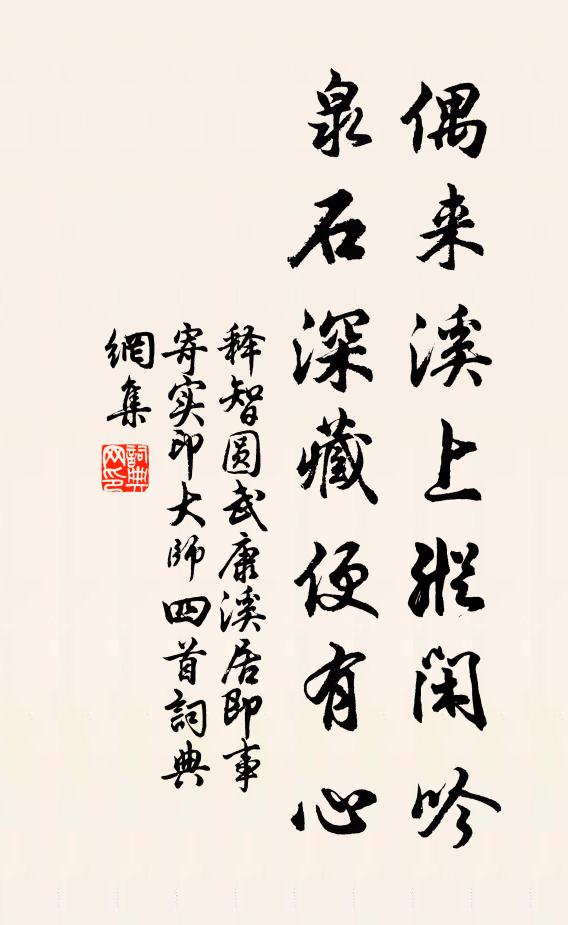 偶来溪上縱閑吟
泉石深藏便有心
释智圆武康溪居即事
寄实印大師四首詞典
網集
詞典网印